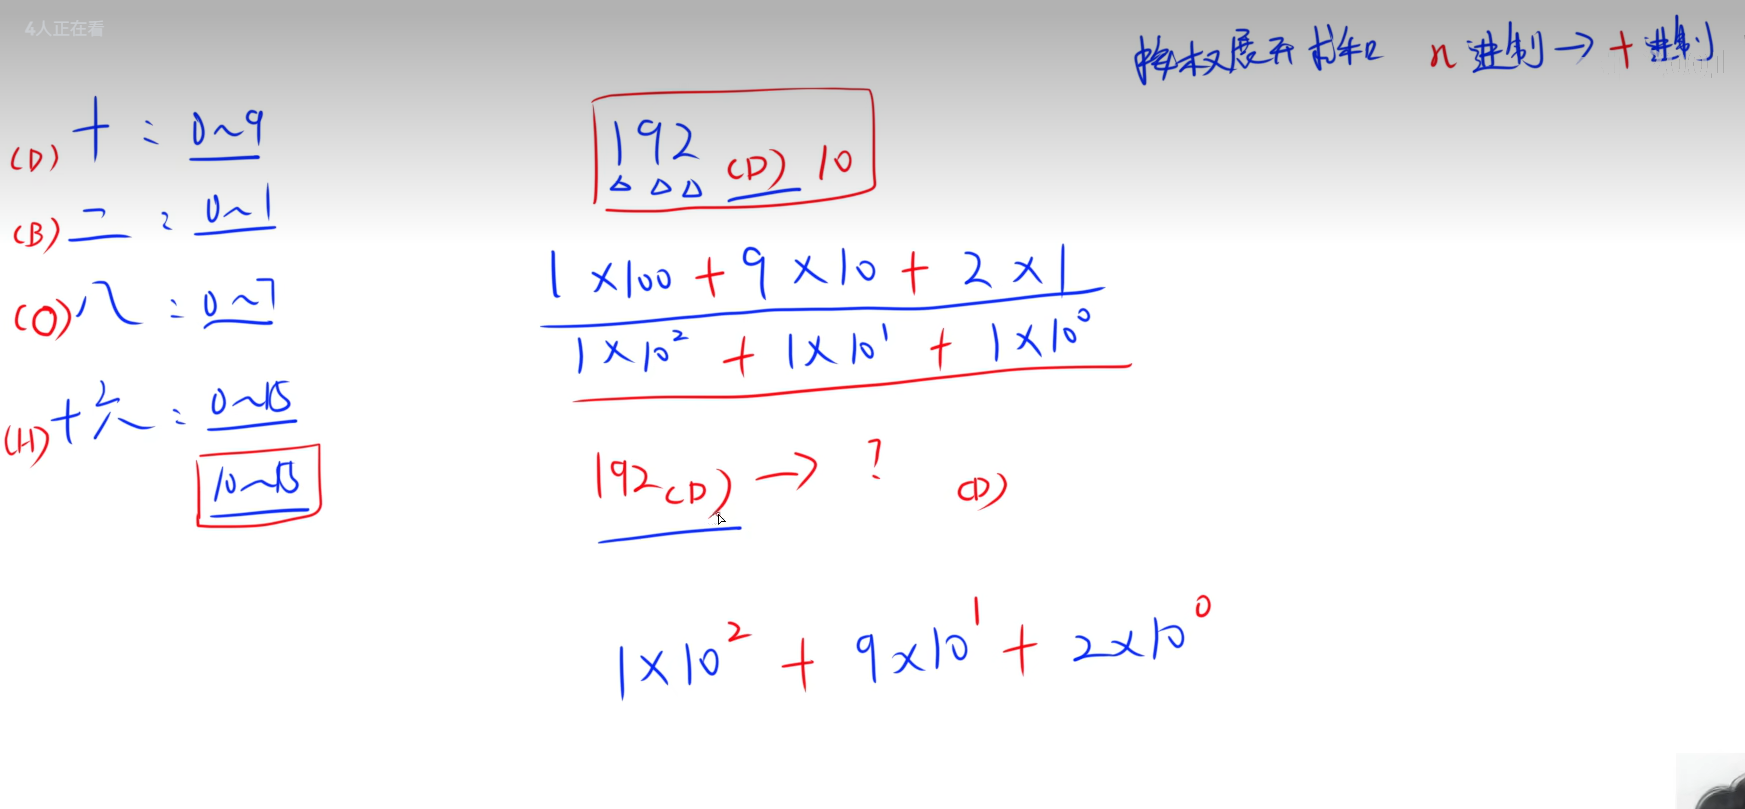 4人正在看
按权展开求和 n进制→十进制
(D) 十：0~9
(B) 二：0~1
(O) 八：0~7
(H) 十六：0~15
10~15
192 (D) 10
1×100+9×10+2×1
1×10² + 1×10¹ + 1×10⁰
192(D) → ? (D)
1×10² + 9×10¹ + 2×10⁰